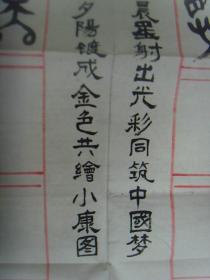 晨星射出光彩同筑中國梦
夕陽镀成金色共繪小康图